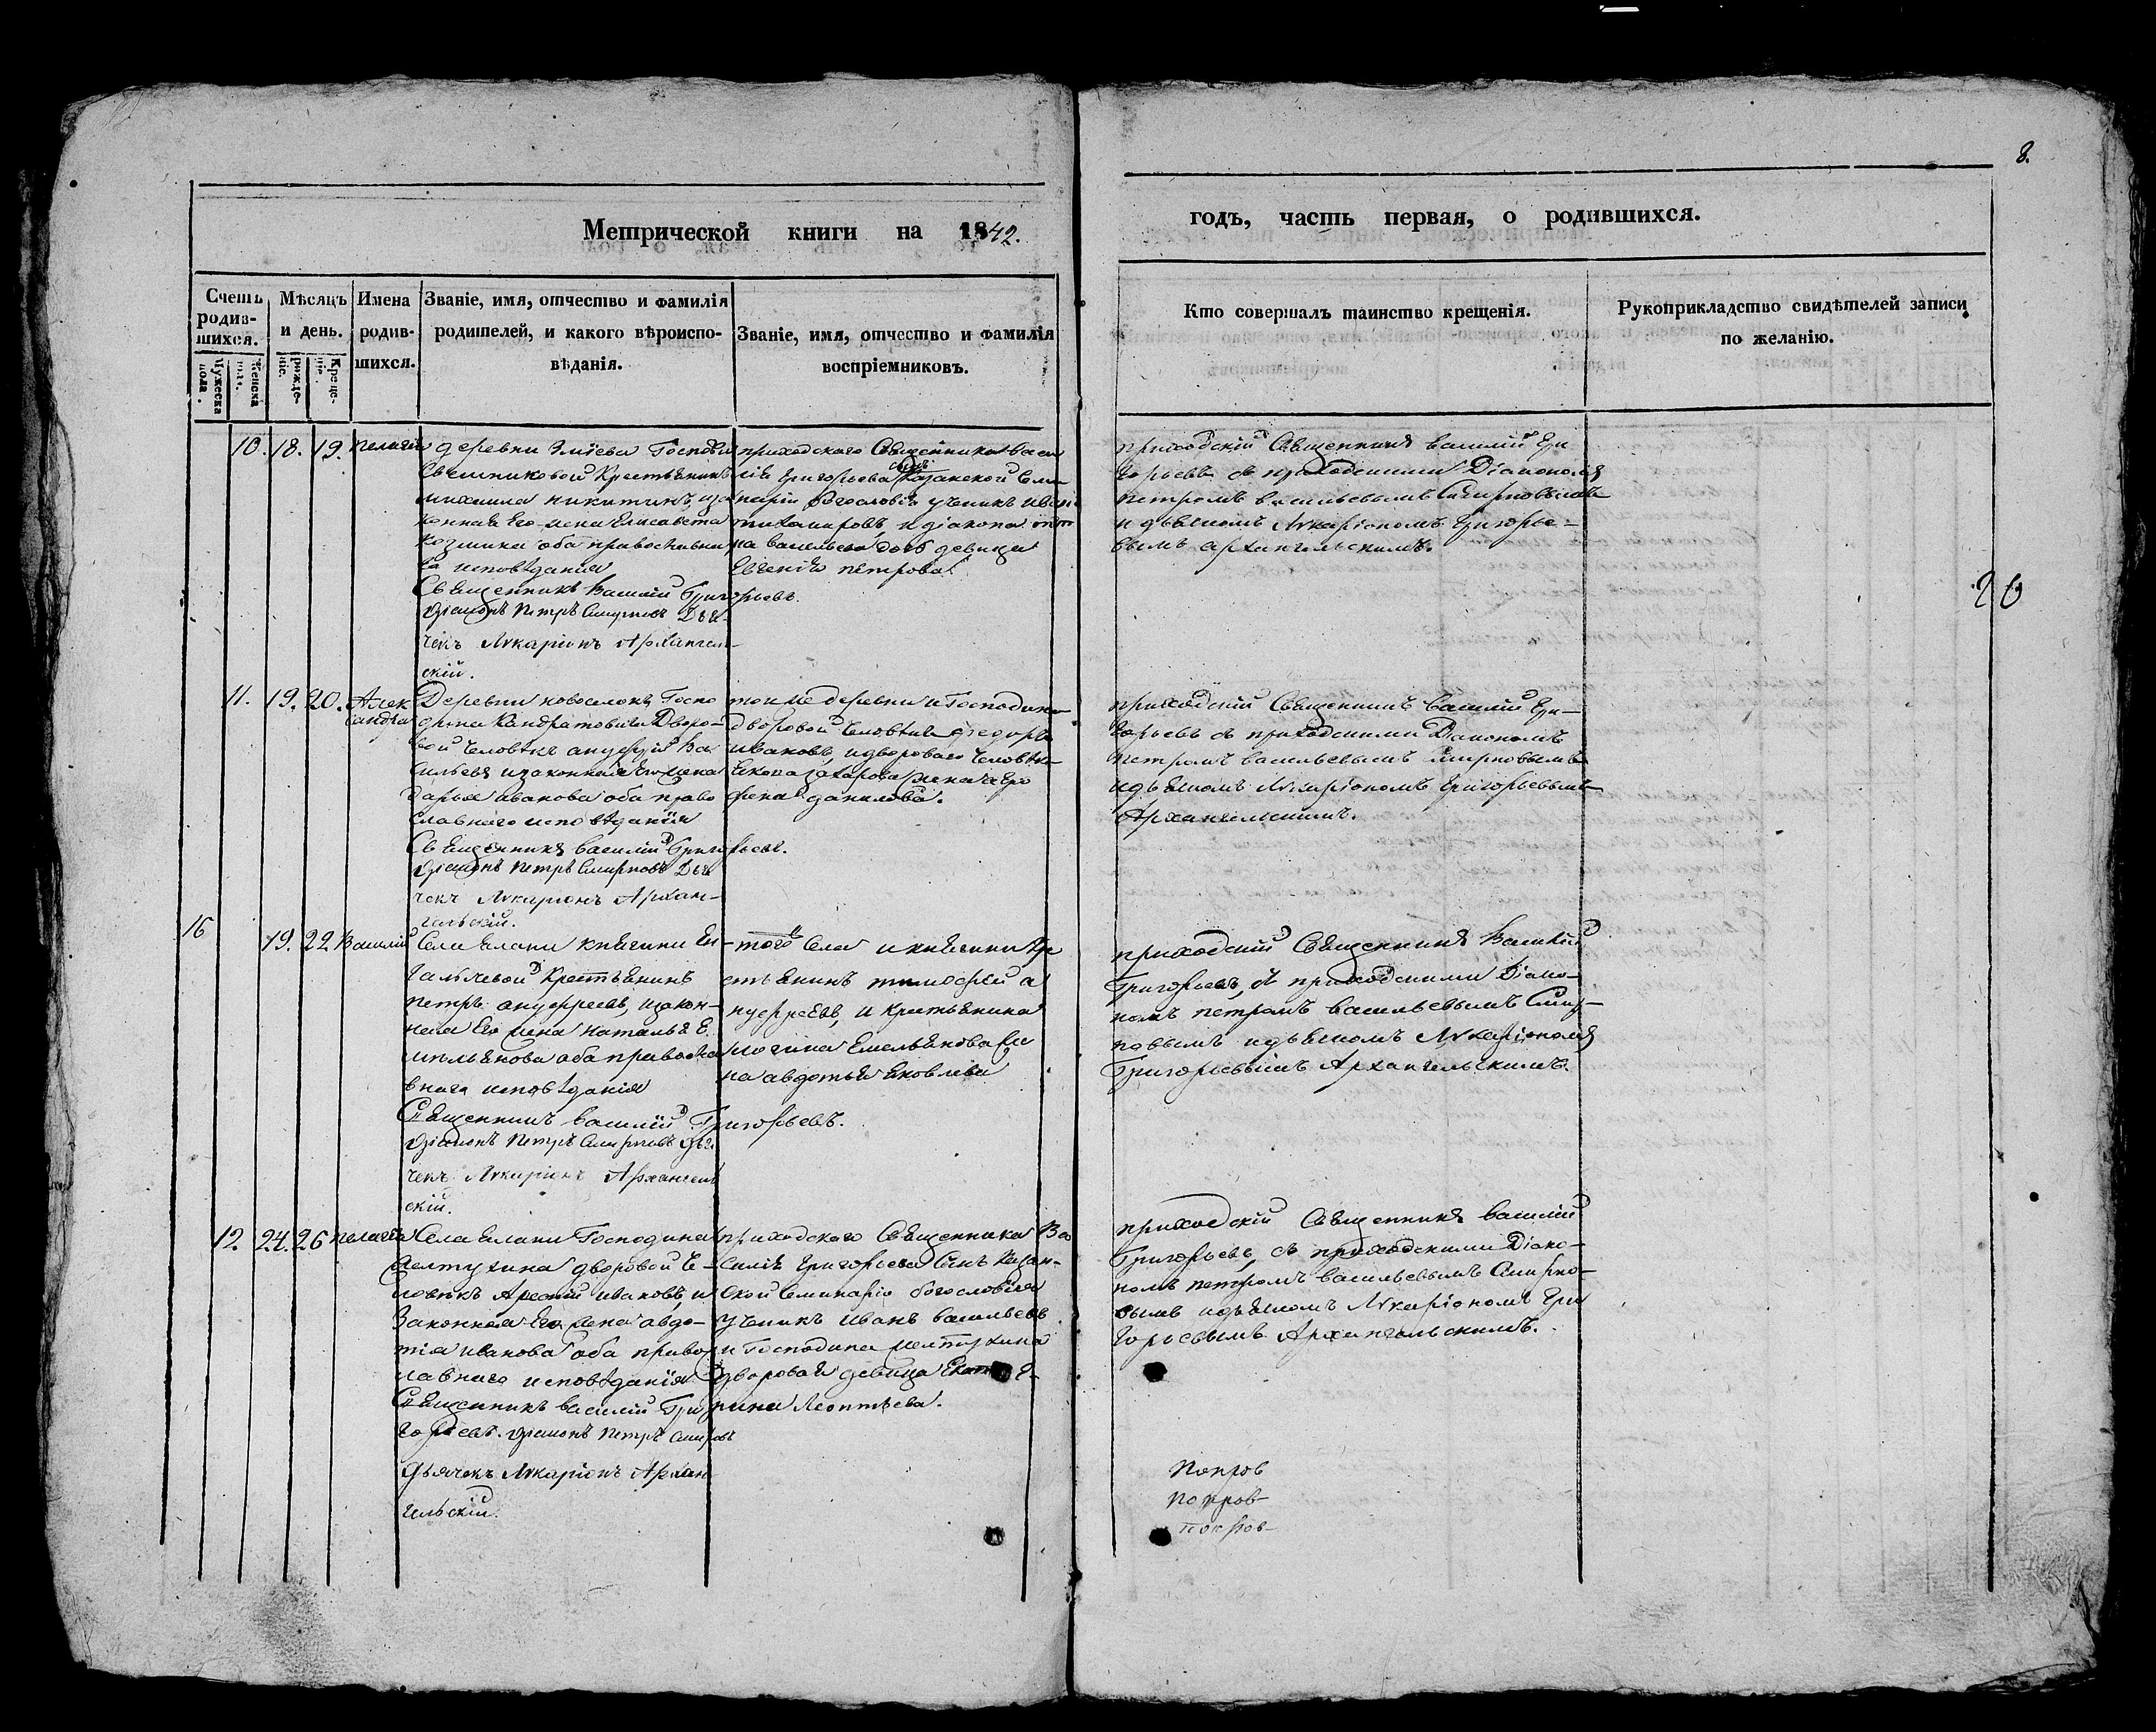 8.
Метрической книги на 1842.
годъ, часть первая, о родившихся.
Счетъ родив-
шихся.
Мужеска пола.
Женска пола.
Мѣсяцъ
и день.
рожде-
нiе.
Креще-
нiе.
Имена
родив-
шихся.
Званiе, имя, отчество и фамилiя
родителей, и какого вѣроиспо-
вѣданiя.
Званiе, имя, отчество и фамилiя
воспрiемниковъ.
Кто совершалъ таинство крещенiя.
Рукоприкладство свидѣтелей записи
по желанiю.
10. 18. 19. Пелагія
деревни Госпожи
Крестьянинъ
михаила никитинъ, иза
конная Его жена Елисавета
Козмина оба православна
го исповѣданія
Священникъ Василій Григорьевъ.
Діаконъ Петръ Смирновъ Дья-
чекъ Иларіонъ Архангел-
скій.
приходскаго Священника Васи
лія Григорьева сынъ Казанской Семи
наріи богословія ученикъ Иванъ
тихомировъ, и діакона петр
на васильева дочь девица
Евгенія петрова.
приходскій Священникъ василій Гри
горьевъ съ приходскими Діакономъ
петромъ васильевымъ Смирновымъ
и дьячкомъ Иларіономъ Григорье-
вымъ архангельскимъ.
20
11. 19. 20. Алек
сандра
Деревни новоселокъ Госпо
дина Кандратовича Дворо-
вой человѣкъ андрей Ва
сильевъ изаконная Его жена
дарья иванова оба право
славнаго исповѣданія
Священникъ василій Григорьевъ.
Діаконъ Петръ Смирновъ Дья
чекъ Иларіонъ Архан-
гельскій.
тоиже деревни и Господина
дворовой человѣкъ федоръ
ивановъ, идвороваго человѣка
захарова жена агро
фена данилова.
приходскій Священникъ Василій Гри-
горьевъ съ приходскими Діакономъ
петромъ васильевымъ Смирновымъ
идьячкомъ Иларіономъ Григорьевымъ
Архангельскимъ.
16 19. 22. Василій
Села Елани княгини Ен-
галычевой Крестьянинъ
петръ андреевъ, изакон-
ная Его жена наталья Е
мильянова оба православ
внаго исповѣданія
Священникъ василій Григорьевъ.
Діаконъ Петръ Смирновъ Дья
чекъ Иларіонъ Архангель
скій.
того Села и княгини Кре
стьянинъ тимофей а
ндреевъ, и Крестьянина
логина Емельянова
на авдотья Яковлева
приходскій Священникъ Василій
Григорьевъ, съ приходскими Діако-
номъ петромъ васильевымъ Смир-
новымъ идьячкомъ Иларіономъ
Григорьевымъ Архангельскимъ.
12. 24. 26 пелагія
Села Елани Господина
Желтухина дворовой че-
ловѣкъ ивановъ, и
Законная Его жена авдо-
тія иванова оба правос
лавнаго исповѣданія
Священникъ василій Гри
горьевъ. Діаконъ Петръ Смирновъ
Дьячекъ Иларіонъ Архан
гельскій.
приходскаго Священника Ва
силія Григорьева Сынъ Казан-
ской Семинаріи богословія
ученикъ иванъ васильевъ
и Господина желтухина
дворовая девица Екате
рина Леонтьева.
приходскій Священникъ василій
Григорьевъ, съ приходскими Діако-
номъ петромъ васильевымъ Смирно-
вымъ идьячкомъ Иларіономъ Гри
горьевымъ Архангельскимъ.
Попров
попров-
покров-